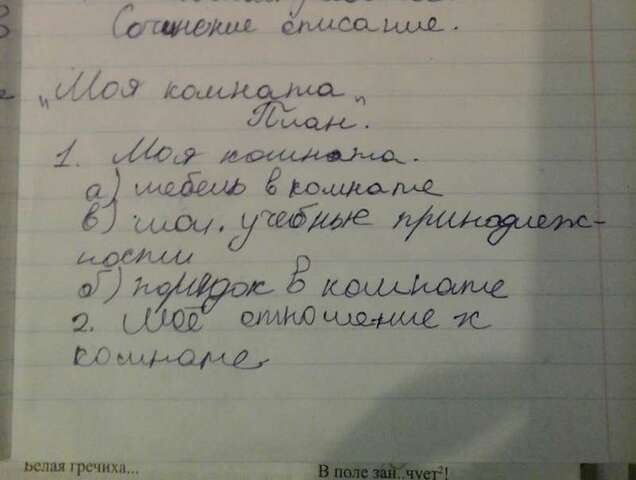 Сочинение описание.
"Моя комната"
План.
1. Моя комната.
а) мебель в комнате
в) мои учебные принадлеж-
ности
б) порядок в комнате
2. Моё отношение к
комнате.
Белая гречиха...
В поле зай..чует²!